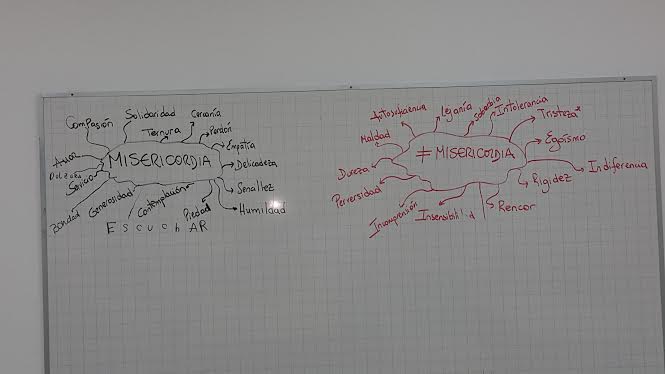 Compasión
Solidaridad
Cercanía
Ternura
Perdón
Empatía
Amor
MISERICORDIA
Delicadeza
Dulzura
Servicio
Senallez
Bondad
Generosidad
Contemplación
Piedad
Humildad
EscuchAR
Autosuficiencia
Lejanía
Soberbia
Intolerancia
Tristeza*
Maldad
Egoísmo
≠ MISERICORDIA
Dureza
Indiferencia
Perversidad
Rigidez
Incomprensión
Insensibilid
Rencor